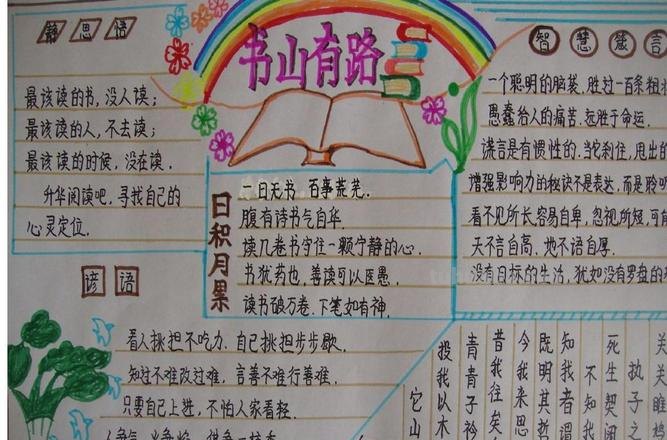 静思语
最该读的书,没人读;
最该读的人,不去读;
最该读的时候,没在读.
升华阅读吧.寻找自己的
心灵定位.
书山有路
日积月累
一日无书 百事荒芜.
腹有诗书气自华.
读几卷书守住一颗宁静的心.
书犹药也,善读可以医愚.
读书破万卷.下笔如有神.
智慧箴言
一个聪明的脑袋.胜过一百条粗壮
愚蠢给人的痛苦.远胜于命运.
谎言是有惯性的.当它刹住,甩出的
增强影响力的秘诀不是表达,而是聆听
看不见所长,容易自卑,忽视所短,可
天不言自高.地不语自厚.
没有目标的生活,犹如没有罗盘的
谚语
看人挑担不吃力.自己挑担步步歇.
知过不难改过难.言善不难行善难.
只要自己上进,不怕人家看轻.
关关雎
执子之
死生契阔
不知我
知我者谓
既明其哲
今我来思
昔我往矣
青青子衿
投我以木
它山